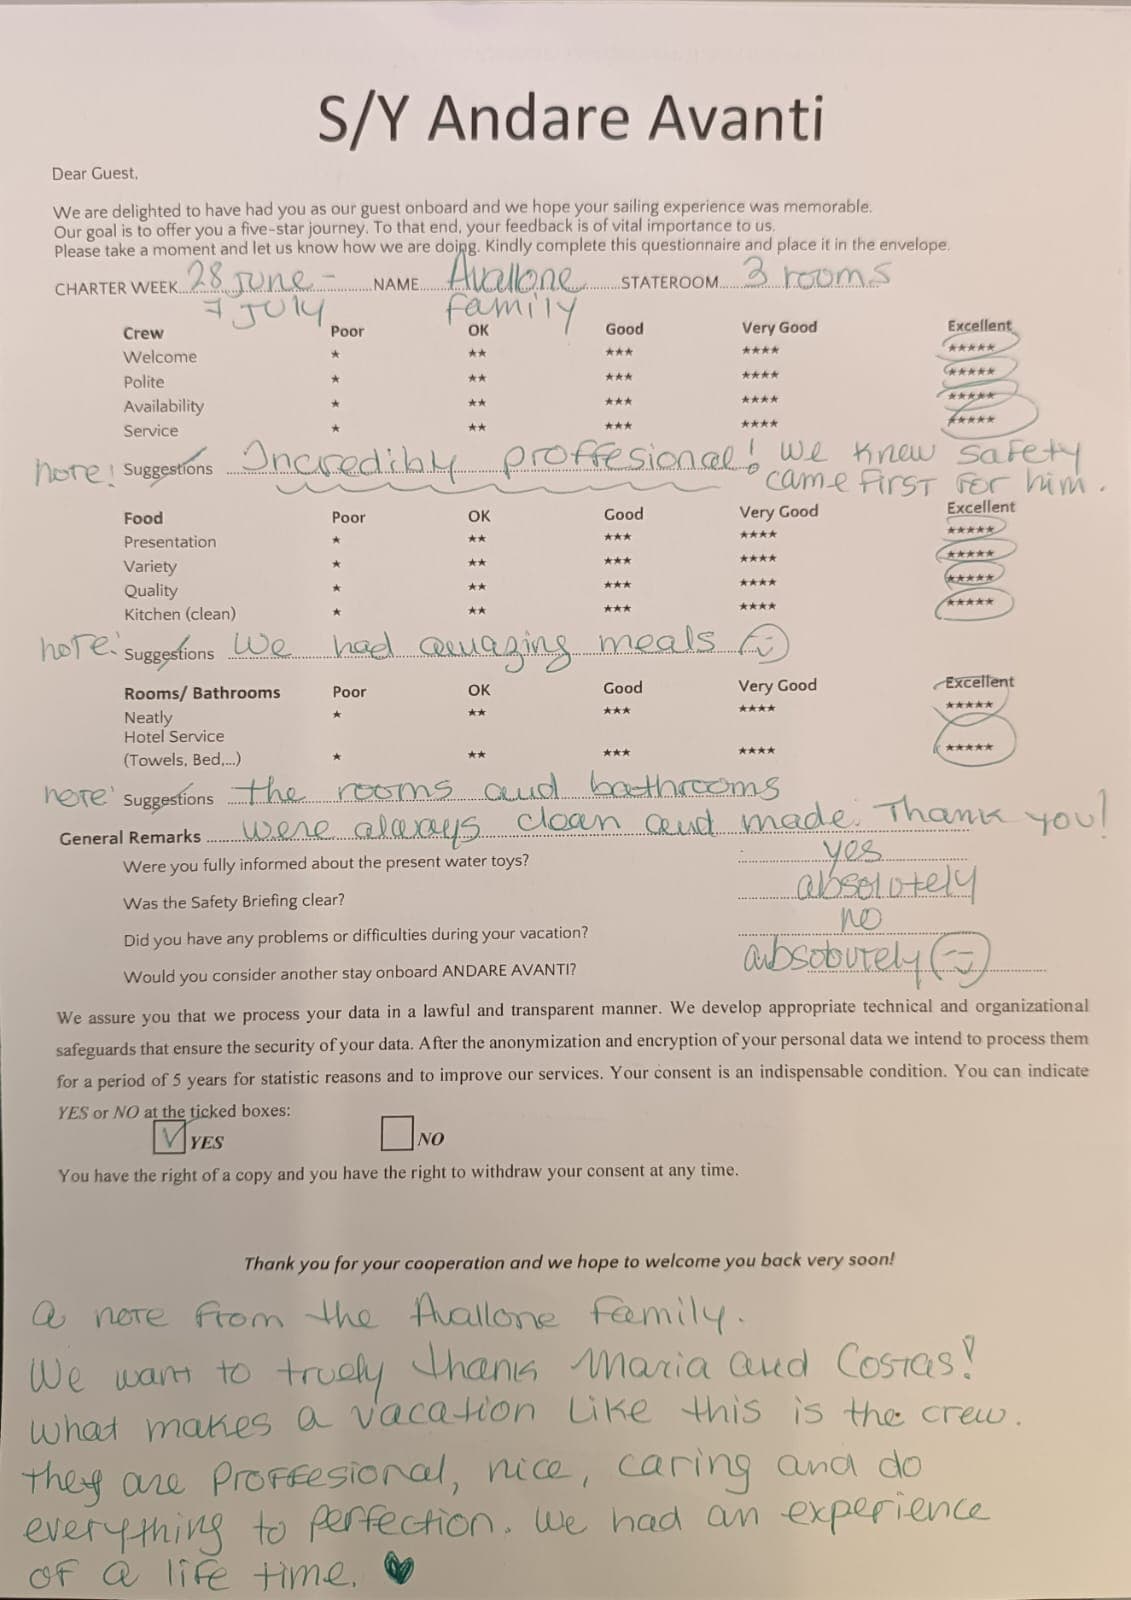 S/Y Andare Avanti
Dear Guest,
We are delighted to have had you as our guest onboard and we hope your sailing experience was memorable.
Our goal is to offer you a five-star journey. To that end, your feedback is of vital importance to us.
Please take a moment and let us know how we are doing. Kindly complete this questionnaire and place it in the envelope.
CHARTER WEEK 28 June - 7 July NAME Avallone family STATEROOM 3 rooms
Crew Poor OK Good Very Good Excellent
Welcome * ** *** **** *****
Polite * ** *** **** *****
Availability * ** *** **** *****
Service * ** *** **** *****
note! Suggestions Incredibly proffesional! we knew safety
came first for him.
Food Poor OK Good Very Good Excellent
Presentation * ** *** **** *****
Variety * ** *** **** *****
Quality * ** *** **** *****
Kitchen (clean) * ** *** **** *****
note: Suggestions We had amazing meals
Rooms/ Bathrooms Poor OK Good Very Good Excellent
Neatly * ** *** **** *****
Hotel Service
(Towels, Bed,...) * ** *** **** *****
note: Suggestions the rooms and bathrooms
General Remarks were always clean and made. Thank you!
Were you fully informed about the present water toys? yes
Was the Safety Briefing clear? absolutely
Did you have any problems or difficulties during your vacation? no
Would you consider another stay onboard ANDARE AVANTI? absolutely
We assure you that we process your data in a lawful and transparent manner. We develop appropriate technical and organizational
safeguards that ensure the security of your data. After the anonymization and encryption of your personal data we intend to process them
for a period of 5 years for statistic reasons and to improve our services. Your consent is an indispensable condition. You can indicate
YES or NO at the ticked boxes:
YES NO
You have the right of a copy and you have the right to withdraw your consent at any time.
Thank you for your cooperation and we hope to welcome you back very soon!
a note from the Avallone family.
We want to truely thank Maria and Costas!
What makes a vacation like this is the crew.
they are proffesional, nice, caring and do
everything to perfection. We had an experience
of a life time.